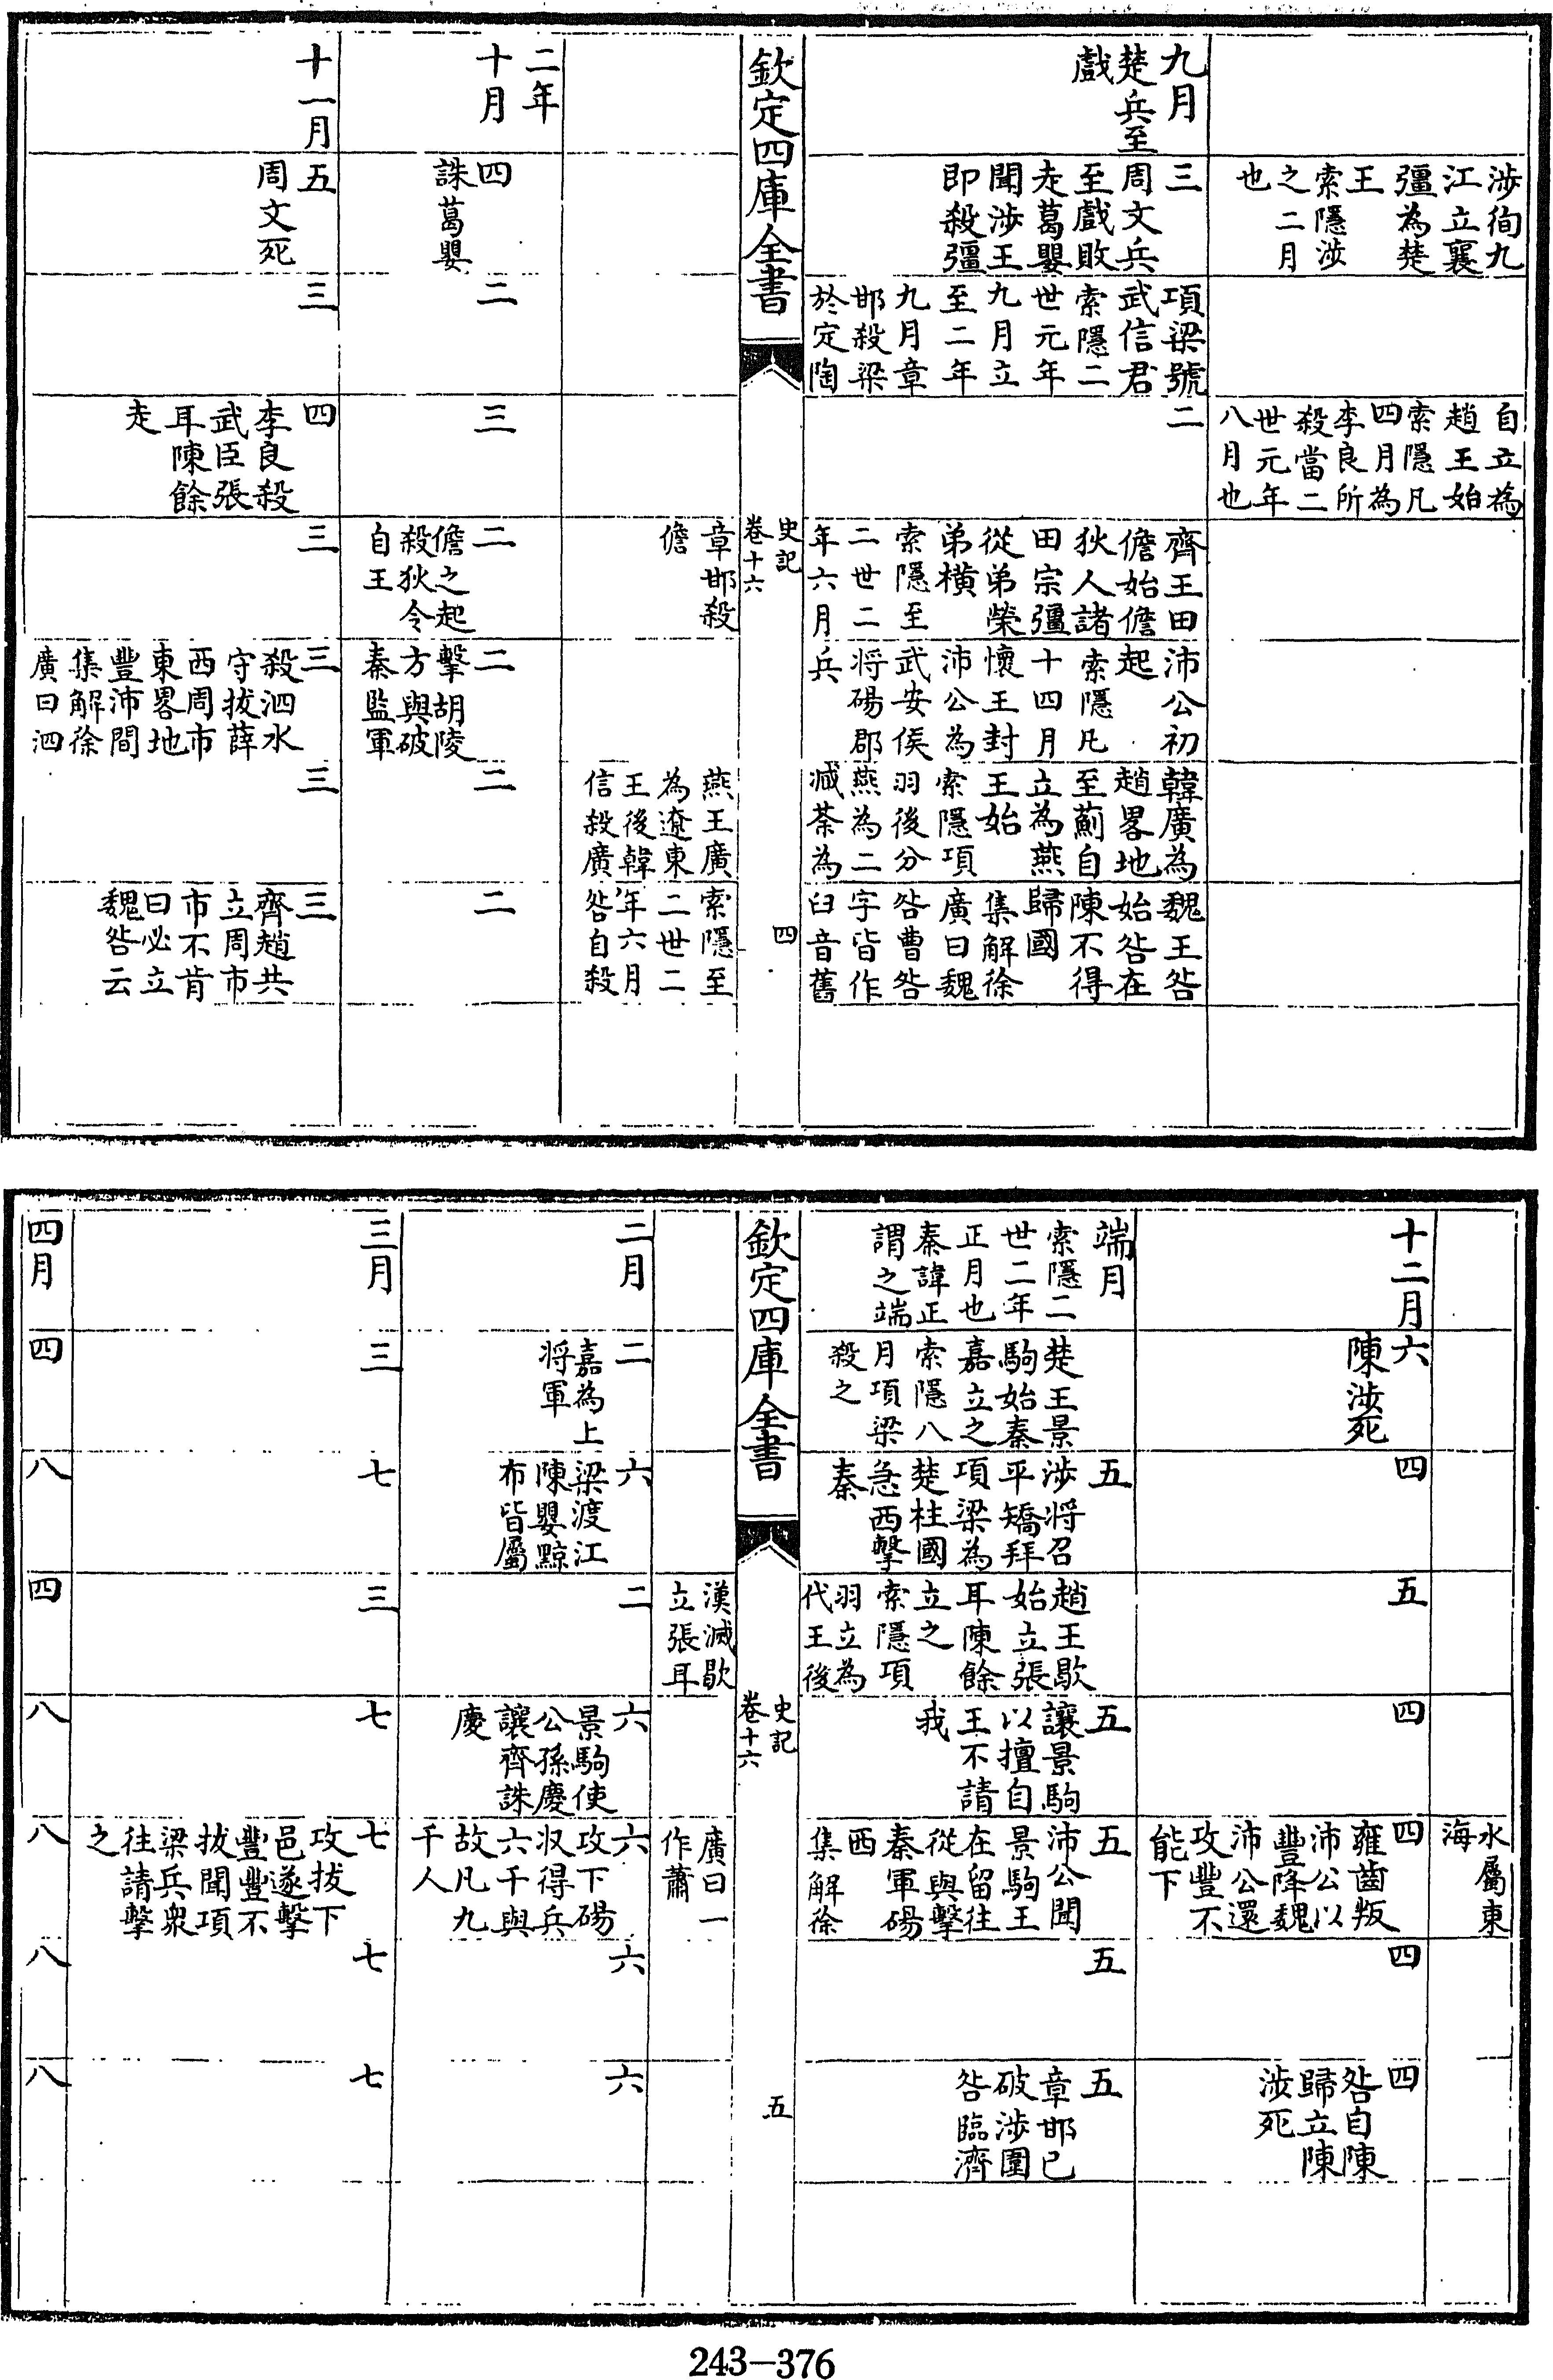 涉徇九
江立襄
彊為楚
王
索隱涉
之二月
也
自立為
趙王始
索隱凡
四月為
李良所
殺當二
世元年
八月也
九月
楚兵至
戲
三
周文兵
至戲敗
走葛嬰
聞涉王
即殺彊
項梁號
武信君
索隱二
世元年
九月立
至二年
九月章
邯殺梁
於定陶
二
齊王田
儋始儋
狄人諸
田宗彊
從弟榮
弟橫
索隱至
二世二
年六月
沛公初
起
索隱凡
十四月
懷王封
沛公為
武安侯
将碭郡
兵
韓廣為
趙畧地
至薊自
立為燕
王始
索隱項
羽後分
燕為二
滅荼為
魏王咎
始咎在
陳不得
歸國
集解徐
廣曰魏
咎曹咎
字皆作
臼音舊
欽定四庫全書
史記
卷十六
四
章邯殺
儋
燕王廣
為遼東
王後韓
信殺廣
索隱至
二世二
年六月
咎自殺
二年
十月
四
誅葛嬰
二
三
二
儋之起
殺狄令
自王
二
擊胡陵
方與破
秦監軍
二
二
十一月
五
周文死
三
四
李良殺
武臣張
耳陳餘
走
三
三
殺泗水
守拔薛
西周市
東畧地
豐沛間
集解徐
廣曰泗
三
三
齊趙共
立周市
市不肯
曰必立
魏咎云
水屬東
海
十二月
六
陳涉死
四
五
四
四
雍齒叛
沛公以
豐降魏
沛公還
攻豐不
能下
四
四
咎自陳
歸立陳
涉死
端月
索隱二
世二年
正月也
秦諱正
謂之端
楚王景
駒始秦
嘉立之
索隱八
月項梁
殺之
五
涉将召
平矯拜
項梁為
楚柱國
急西擊
秦
趙王歇
始立張
耳陳餘
立之
索隱項
羽立為
代王後
五
讓景駒
以擅自
王不請
我
五
沛公聞
景駒王
在留往
從與擊
秦軍碭
西
集解徐
五
五
章邯已
破涉圍
咎臨濟
欽定四庫全書
史記
卷十六
五
漢滅歇
立張耳
廣曰一
作蕭
二月
二
嘉為上
将軍
六
梁渡江
陳嬰黥
布皆屬
二
六
景駒使
公孫慶
讓齊誅
慶
六
攻下碭
収得兵
六千與
故凡九
千人
六
六
三月
三
七
三
七
七
攻拔下
邑遂擊
豐豐不
拔聞項
梁兵衆
往請擊
之
七
七
四月
四
八
四
八
八
八
八
243-376